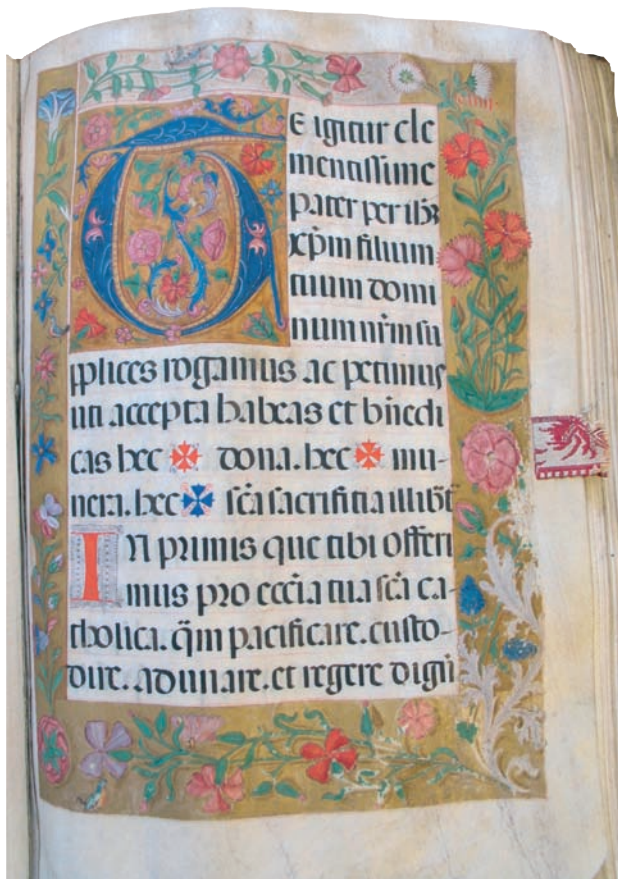 TE igitur cle
mentissime
pater per ihꝫ
xp̄m filium
tuum domi
num nr̄m su
pplices rogamus ac petimus
uti accepta habeas et bn̄edi
cas hec ✠ dona. hec ✠ mu-
nera. hec ✠ sc̄a sacrifitia illibt̄
IN primis que tibi offeri
mus pro ecc̄ia tua sc̄a ca-
tholica. q̄m pacificare. custo-
dire. adunare. et regere dign̄